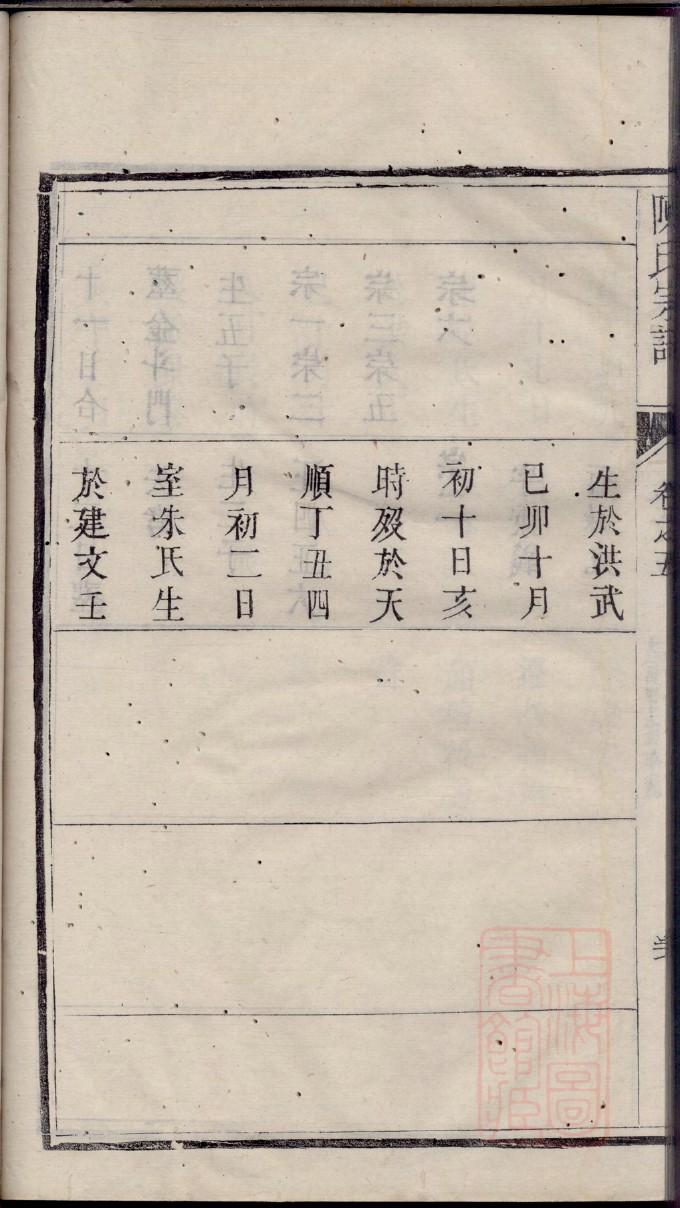 陳氏宗譜
卷之五
生於洪武
己卯十月
初十日亥
時歿於天
順丁丑四
月初二日
室朱氏生
於建文壬
上海圖
書館臧